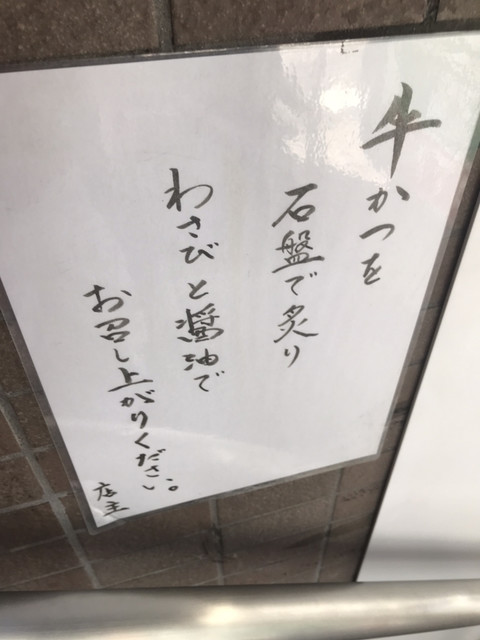 牛かつを
石盤で炙り
わさびと醤油で
お召し上がりください。
店主